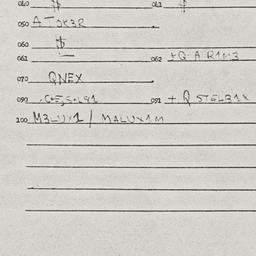 040 $ 041 $
050 ATJK3R
060 $
061 062 +Q A R1M3
070 QNEX
090 091 + Q STEL31X
100 M3LUX1 / MALUX1M